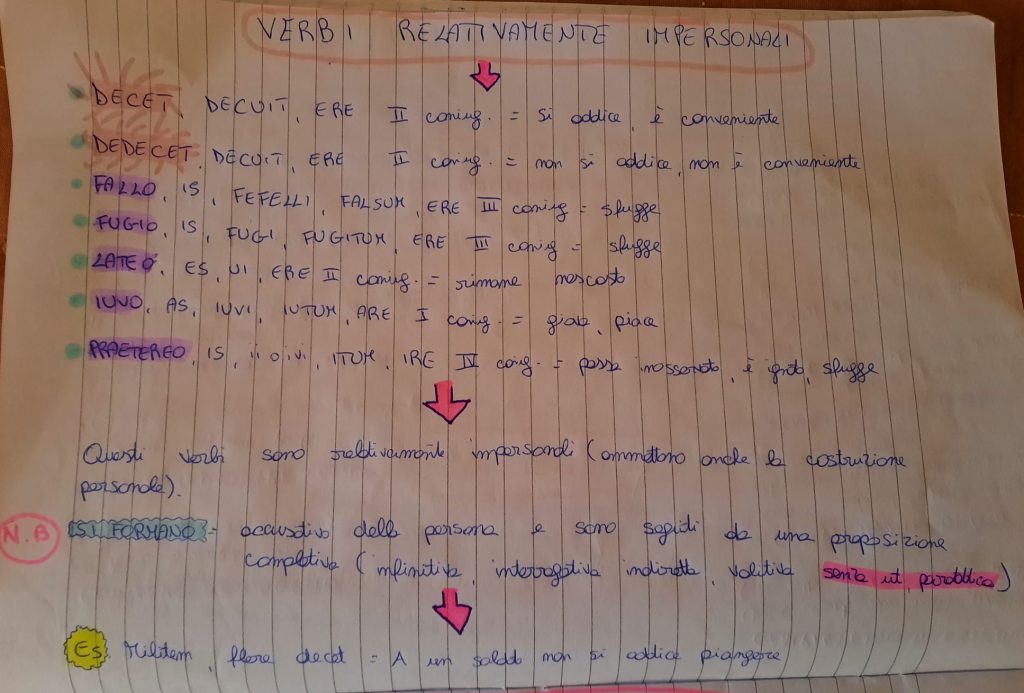 VERBI RELATIVAMENTE IMPERSONALI
DECET, DECUIT, ERE II coniug. = si addice, è conveniente
DEDECET, DECUIT, ERE II coniug. = non si addice, non è conveniente
FALLO, IS, FEFELLI, FALSUM, ERE III coniug = sfugge
FUGIO, IS, FUGI, FUGITUM, ERE III coniug = sfugge
LATEO, ES, UI, ERE II coniug. = rimane nascosto
IUVO, AS, IUVI, IUTUM, ARE I coniug. = giova, piace
PRAETEREO, IS, ii o ivi, ITUM, IRE IV coniug. = passa inosservato, è ignoto, sfugge
Questi verbi sono relativamente impersonali (ammettono anche la costruzione
personale).
N.B SI FORMANO - accusativo della persona e sono seguiti da una proposizione
completiva (infinitiva, interrogativa indiretta, volitiva senza ut, paratattica)
Es Militem, flere decet = A un soldato non si addice piangere